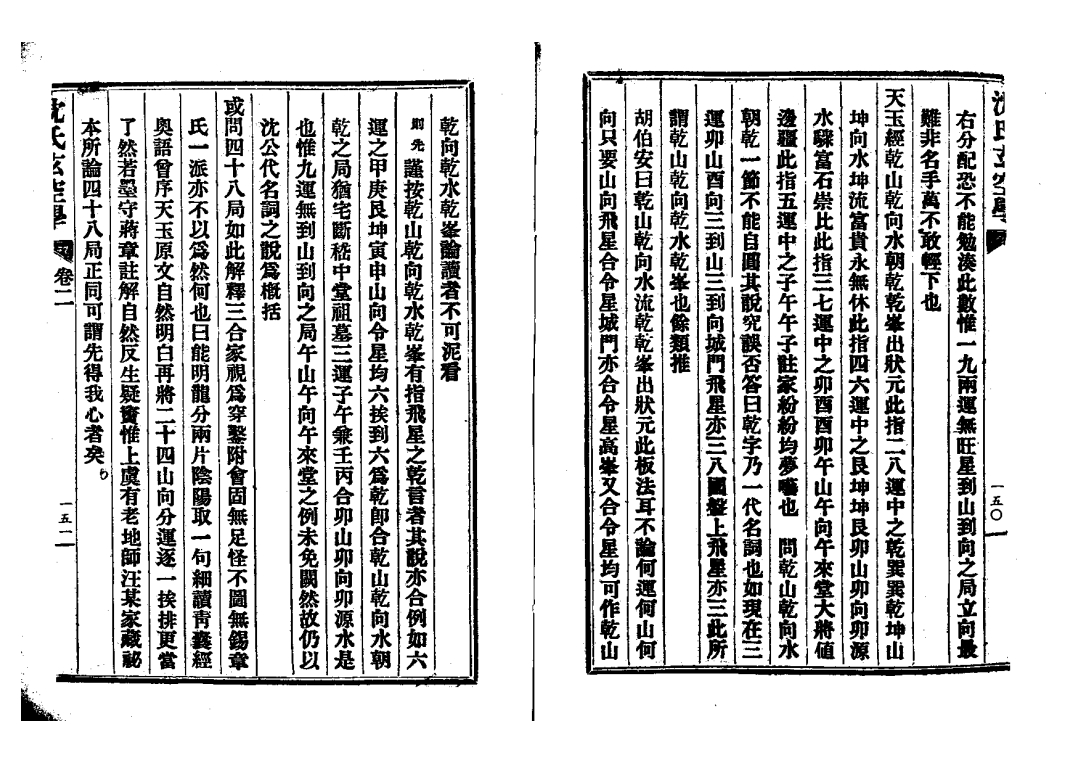 沈氏玄空學
一五〇
右分配恐不能勉湊此數惟一九兩運無旺星到山到向之局立向最
難非名手萬不敢輕下也
天玉經乾山乾向水朝乾乾峯出狀元此指二八運中之乾巽巽乾坤山
坤向水坤流富貴永無休此指四六運中之艮坤坤艮卯山卯向卯源
水驟富石崇比此指三七運中之卯酉酉卯午山午向午來堂大將値
邊疆此指五運中之子午午子註家紛紛均夢囈也 問乾山乾向水
朝乾一節不能自圓其說究誤否答曰乾字乃一代名詞也如現在三
運卯山酉向三到山三到向城門飛星亦三八國盤上飛星亦三此所
謂乾山乾向乾水乾峯也餘類推
胡伯安曰乾山乾向水流乾乾峯出狀元此板法耳不論何運何山何
向只要山向飛星合令星城門亦合令星高峯又合令星均可作乾山
乾向乾水乾峯論讀者不可泥看
則先謹按乾山乾向乾水乾峯有指飛星之乾言者其說亦合例如六
運之甲庚艮坤寅申山向令星均六挨到六爲乾卽合乾山乾向水朝
乾之局猶宅斷嵇中堂祖墓三運子午兼壬丙合卯山卯向卯源水是
也惟九運無到山到向之局午山午向午來堂之例未免闕然故仍以
沈公代名詞之說爲槪括
或問四十八局如此解釋三合家視爲穿鑿附會固無足怪不圖無錫章
氏一派亦不以爲然何也曰能明龍分兩片陰陽取一句細讀靑囊經
奧語曾序天玉原文自然明白再將二十四山向分運逐一挨排更當
了然若墨守蔣章註解自然反生疑竇惟上虞有老地師汪某家藏祕
本所論四十八局正同可謂先得我心者矣
沈氏玄空學
卷二
一五一